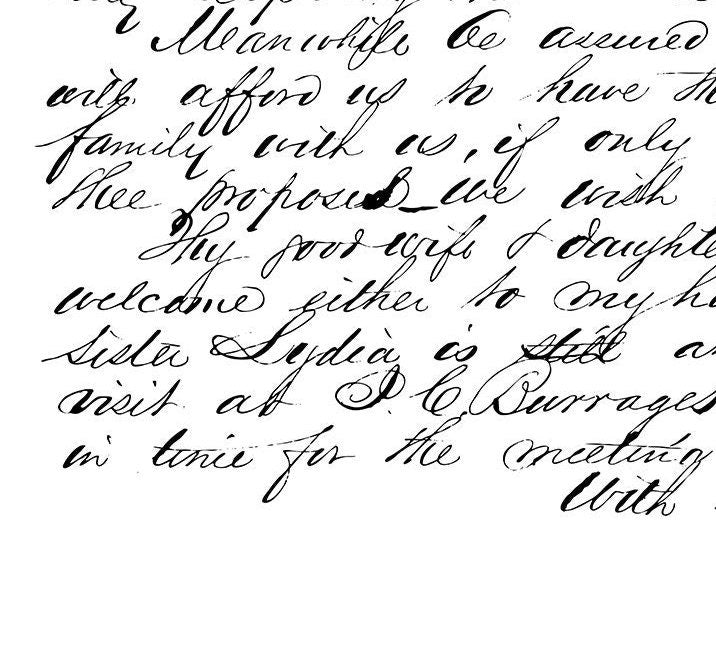 Meanwhile be assured
will afford us to have
family with us, if only
thee proposed_we wish
Thy good wife & daughte
welcome either to my h
sister Lydia is still a
visit at J. C. Burrages
in time for the meeting
With